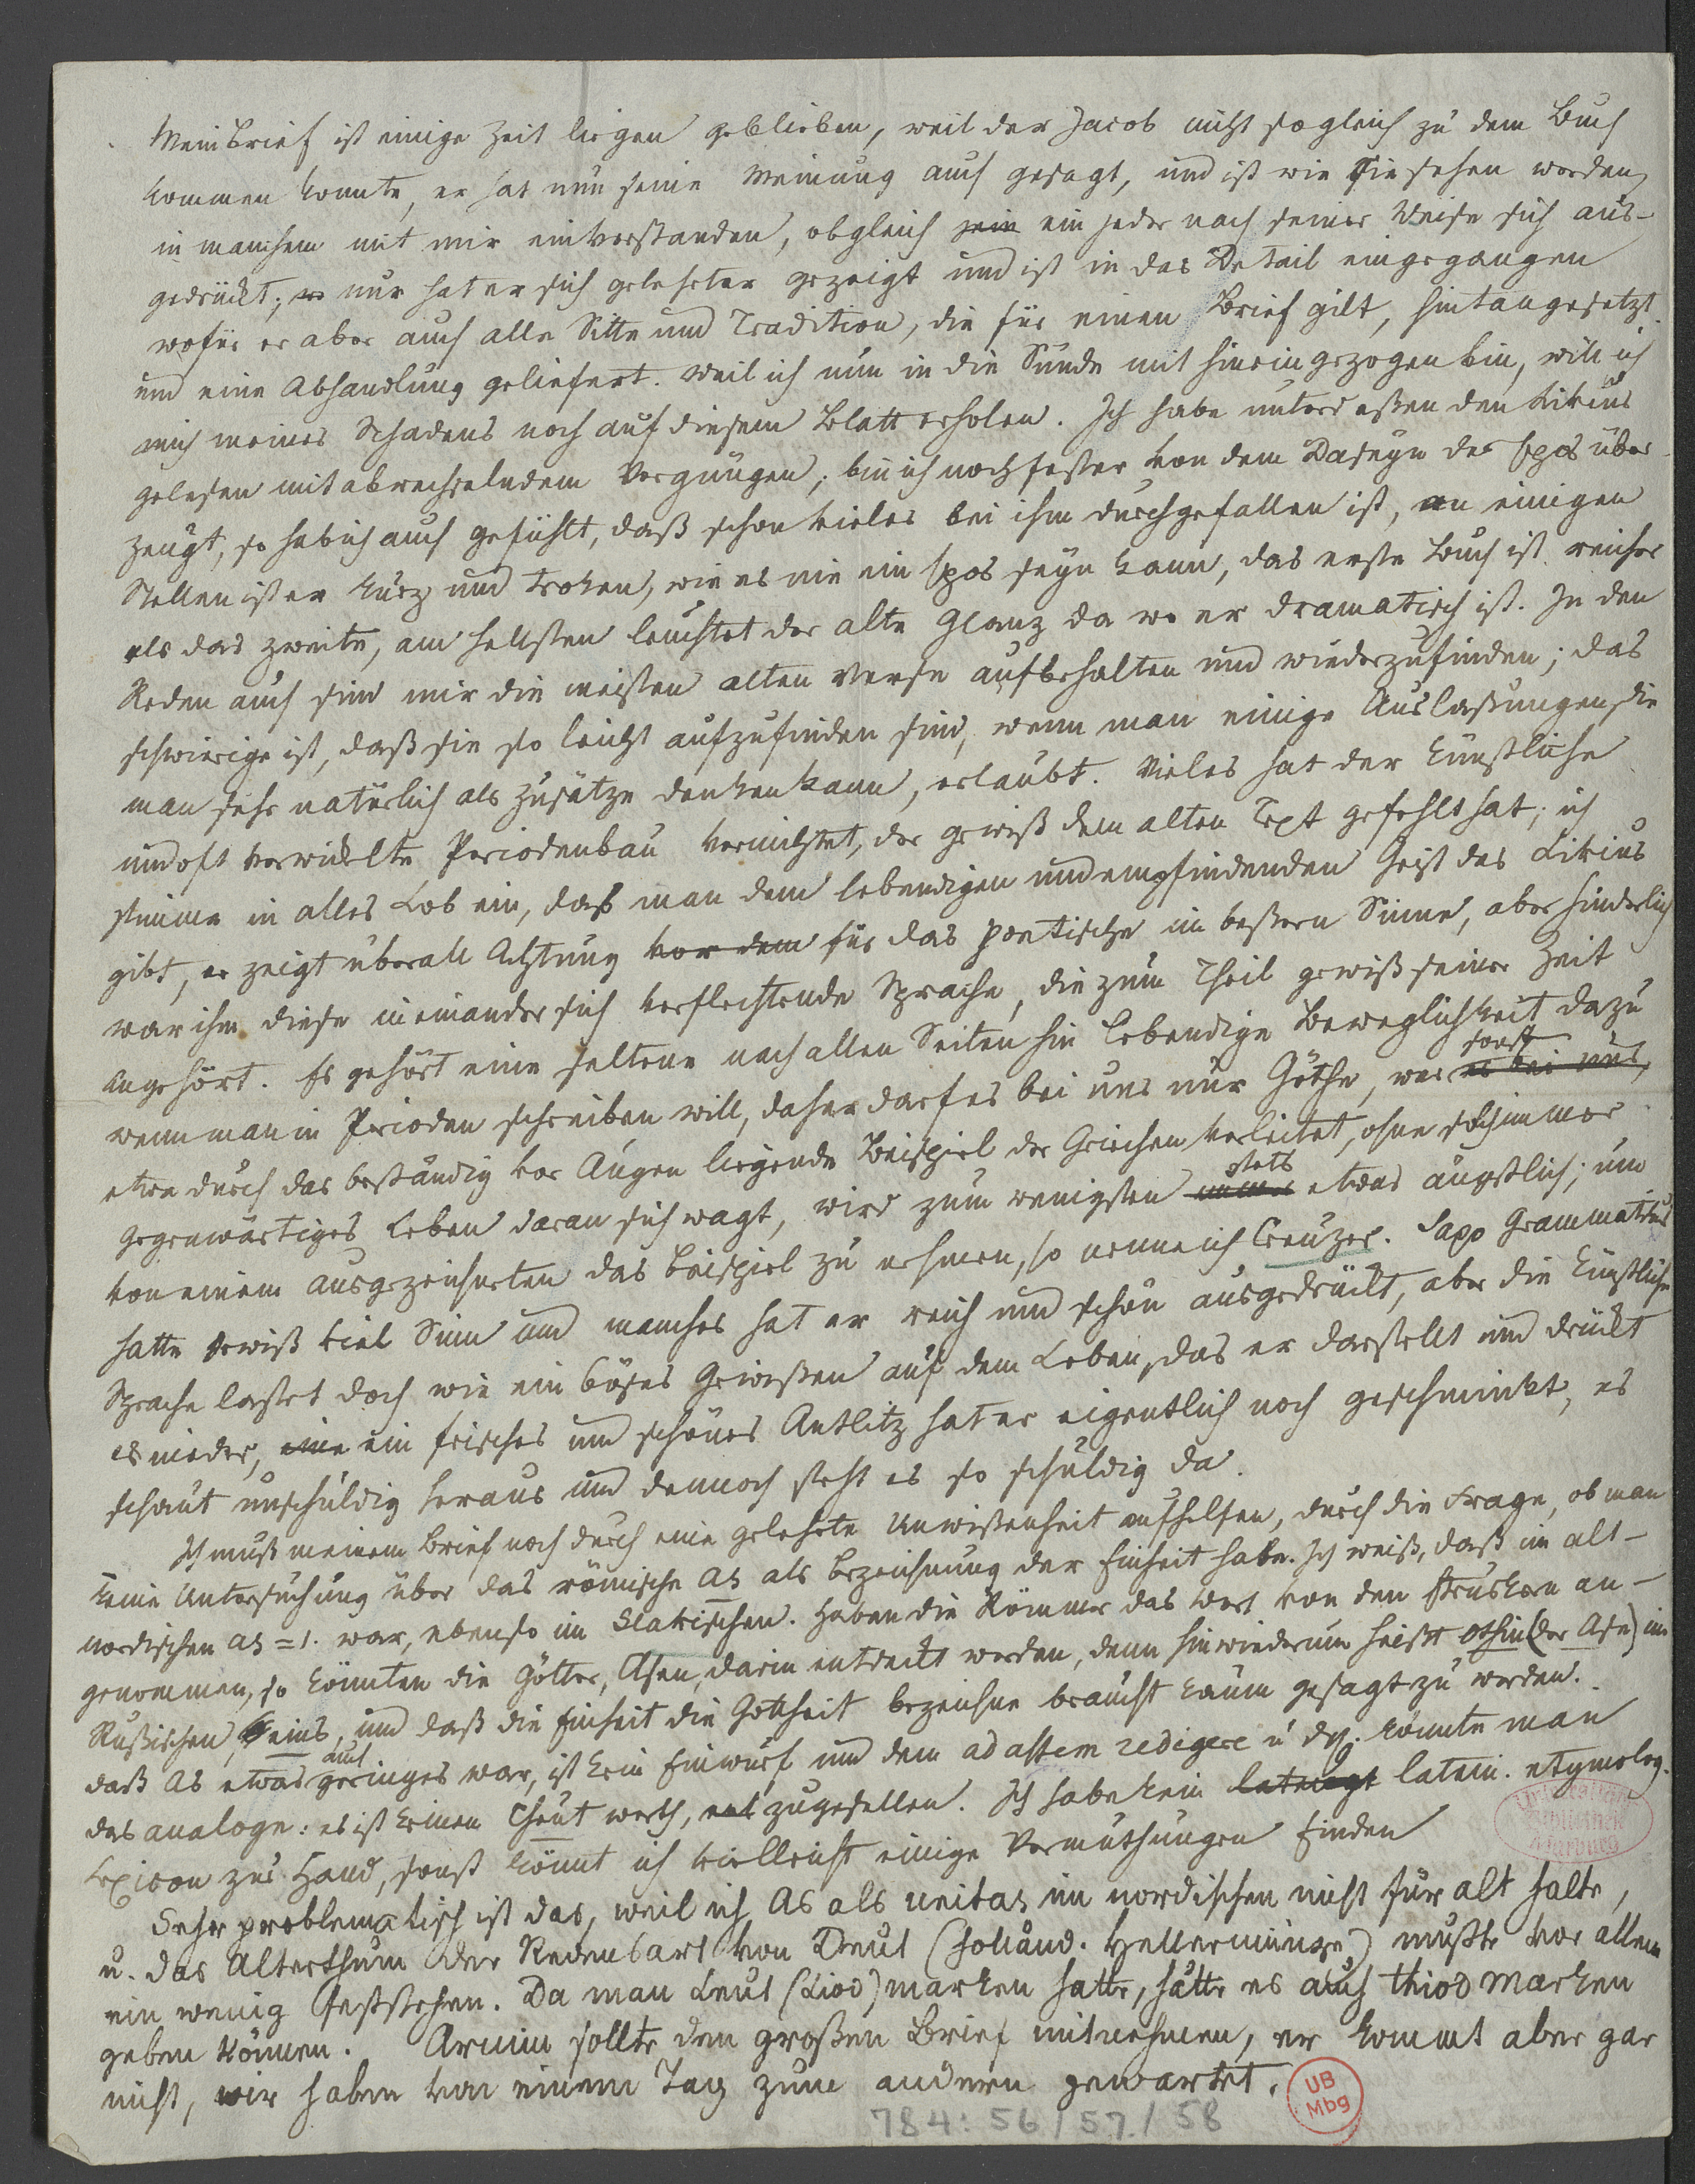 Mein Brief ist einige Zeit liegen geblieben, weil der Jacob nicht sogleich zu dem Buch
kommen konnte, er hat nun seine Meinung auch gesagt, und ist wie Sie sehen werden,
in manchem mit mir einverstanden, obgleich sein ein jeder nach seiner Weise sich aus-
gedrückt; nur hat er sich gelehrter gezeigt und ist in das Detail eingegangen
wofür er aber auch alle Sitte und Tradition, die für einen Brief gilt, hintangesetzt
und eine Abhandlung geliefert. Weil ich nun in die Sünde mit hineingezogen bin, will ich
mich meines Schadens noch auf diesem Blatt erholen. Ich habe unterdessen den Livius
gelesen mit abwechselndem Vergnügen; bin ich noch fester von dem Daseyn des Epos über-
zeugt, so hab ich auch gefühlt, daß schon vieles bei ihm durchgefallen ist, an einigen
Stellen ist er kurz und troken, wie es nie ein Epos seyn kann, das erste Buch ist reicher
als das zweite, am hellsten leuchtet der alte Glanz da wo er dramatisch ist. In den
Reden auch sind mir die meisten alten Verse aufbehalten und wiederzufinden; das
schwierige ist, daß sie so leicht aufzufinden sind, wenn man einige Auslassungen, die
man sehr natürlich als Zusätze denken kann, erlaubt. Vieles hat der künstliche
und oft verwickelte Periodenbau vernichtet, der gewiß dem alten Text gefehlt hat; ich
stimme in alles Lob ein, daß man dem lebendigen und empfindenden Geist des Livius
gibt, er zeigt überall Achtung vor dem für das poetische im bessern Sinne, aber hinderlich
war ihm diese ineinander sich verflechtende Sprache, die zum Theil gewiß seiner Zeit
angehört. Es gehört eine seltene nach allen Seiten hin lebendige Beweglichkeit dazu
wenn man in Perioden schreiben will, daher darf es bei uns nur Göthe, wer es bei uns, sonst
etwa durch das beständig vor Augen liegende Beispiel der Griechen verleitet, ohne solch immer
gegenwärtiges Leben daran sich wagt, wird zum wenigsten immer stets etwas ängstlich; um
von einem ausgezeichneten das Beispiel zu nehmen, so nenne ich Creuzer. Saxo Grammaticus
hatte gewiß viel Sinn und manches hat er reich und schön ausgedrückt, aber die künstliche
Sprache lastet doch wie ein böses Gewissen auf dem Leben, das er darstellt und drückt
es nieder, eine ein frisches und schönes Antlitz hat er eigentlich noch geschminkt, es
schaut unschuldig heraus und dennoch steht es so schuldig da.
Ich muß meinem Brief noch durch eine gelehrte Unwissenheit aufhelfen, durch die Frage, ob man
keine Untersuchung über das römische as als Bezeichnung der Einheit habe. Ich weiß, daß im alt-
nordischen as = 1. war, ebenso im Slavischen. Haben die Römer das Wort von den Etruskern an-
genommen, so könnten die Götter, Asen, darin entdeckt werden, denn hinwiederum heißt Othin (der Ase) im
Rußischen, eins, und daß die Einheit die Gottheit bezeichne braucht kaum gesagt zu werden.
daß as etwas geringes war, ist kein Einwurf und dem ad assem redigere u dgl. könnte man
das analoge: es ist keinen Theut werth, zugesellen. Ich habe kein latein. etymolog.
Lexicon zur Hand, sonst könnt ich vielleicht einige Vermuthungen finden
Sehr problematisch ist das, weil ich As als unitas im nordischen nicht für alt halte,
u. das Alterthum der Redensart von Deut (holländ. Hellermünze) müßte vor allem
ein wenig feststehen. Da man Leut (Liod) marken hatte, hätte es auch thiod marken
geben können. Arnim sollte den großen Brief mitnehmen, er kommt aber gar
nicht, wir haben von einem Tag zum andern gewartet.
Universitäts
Bibliothek
Marburg
UB
Mbg
784: 56/57/58